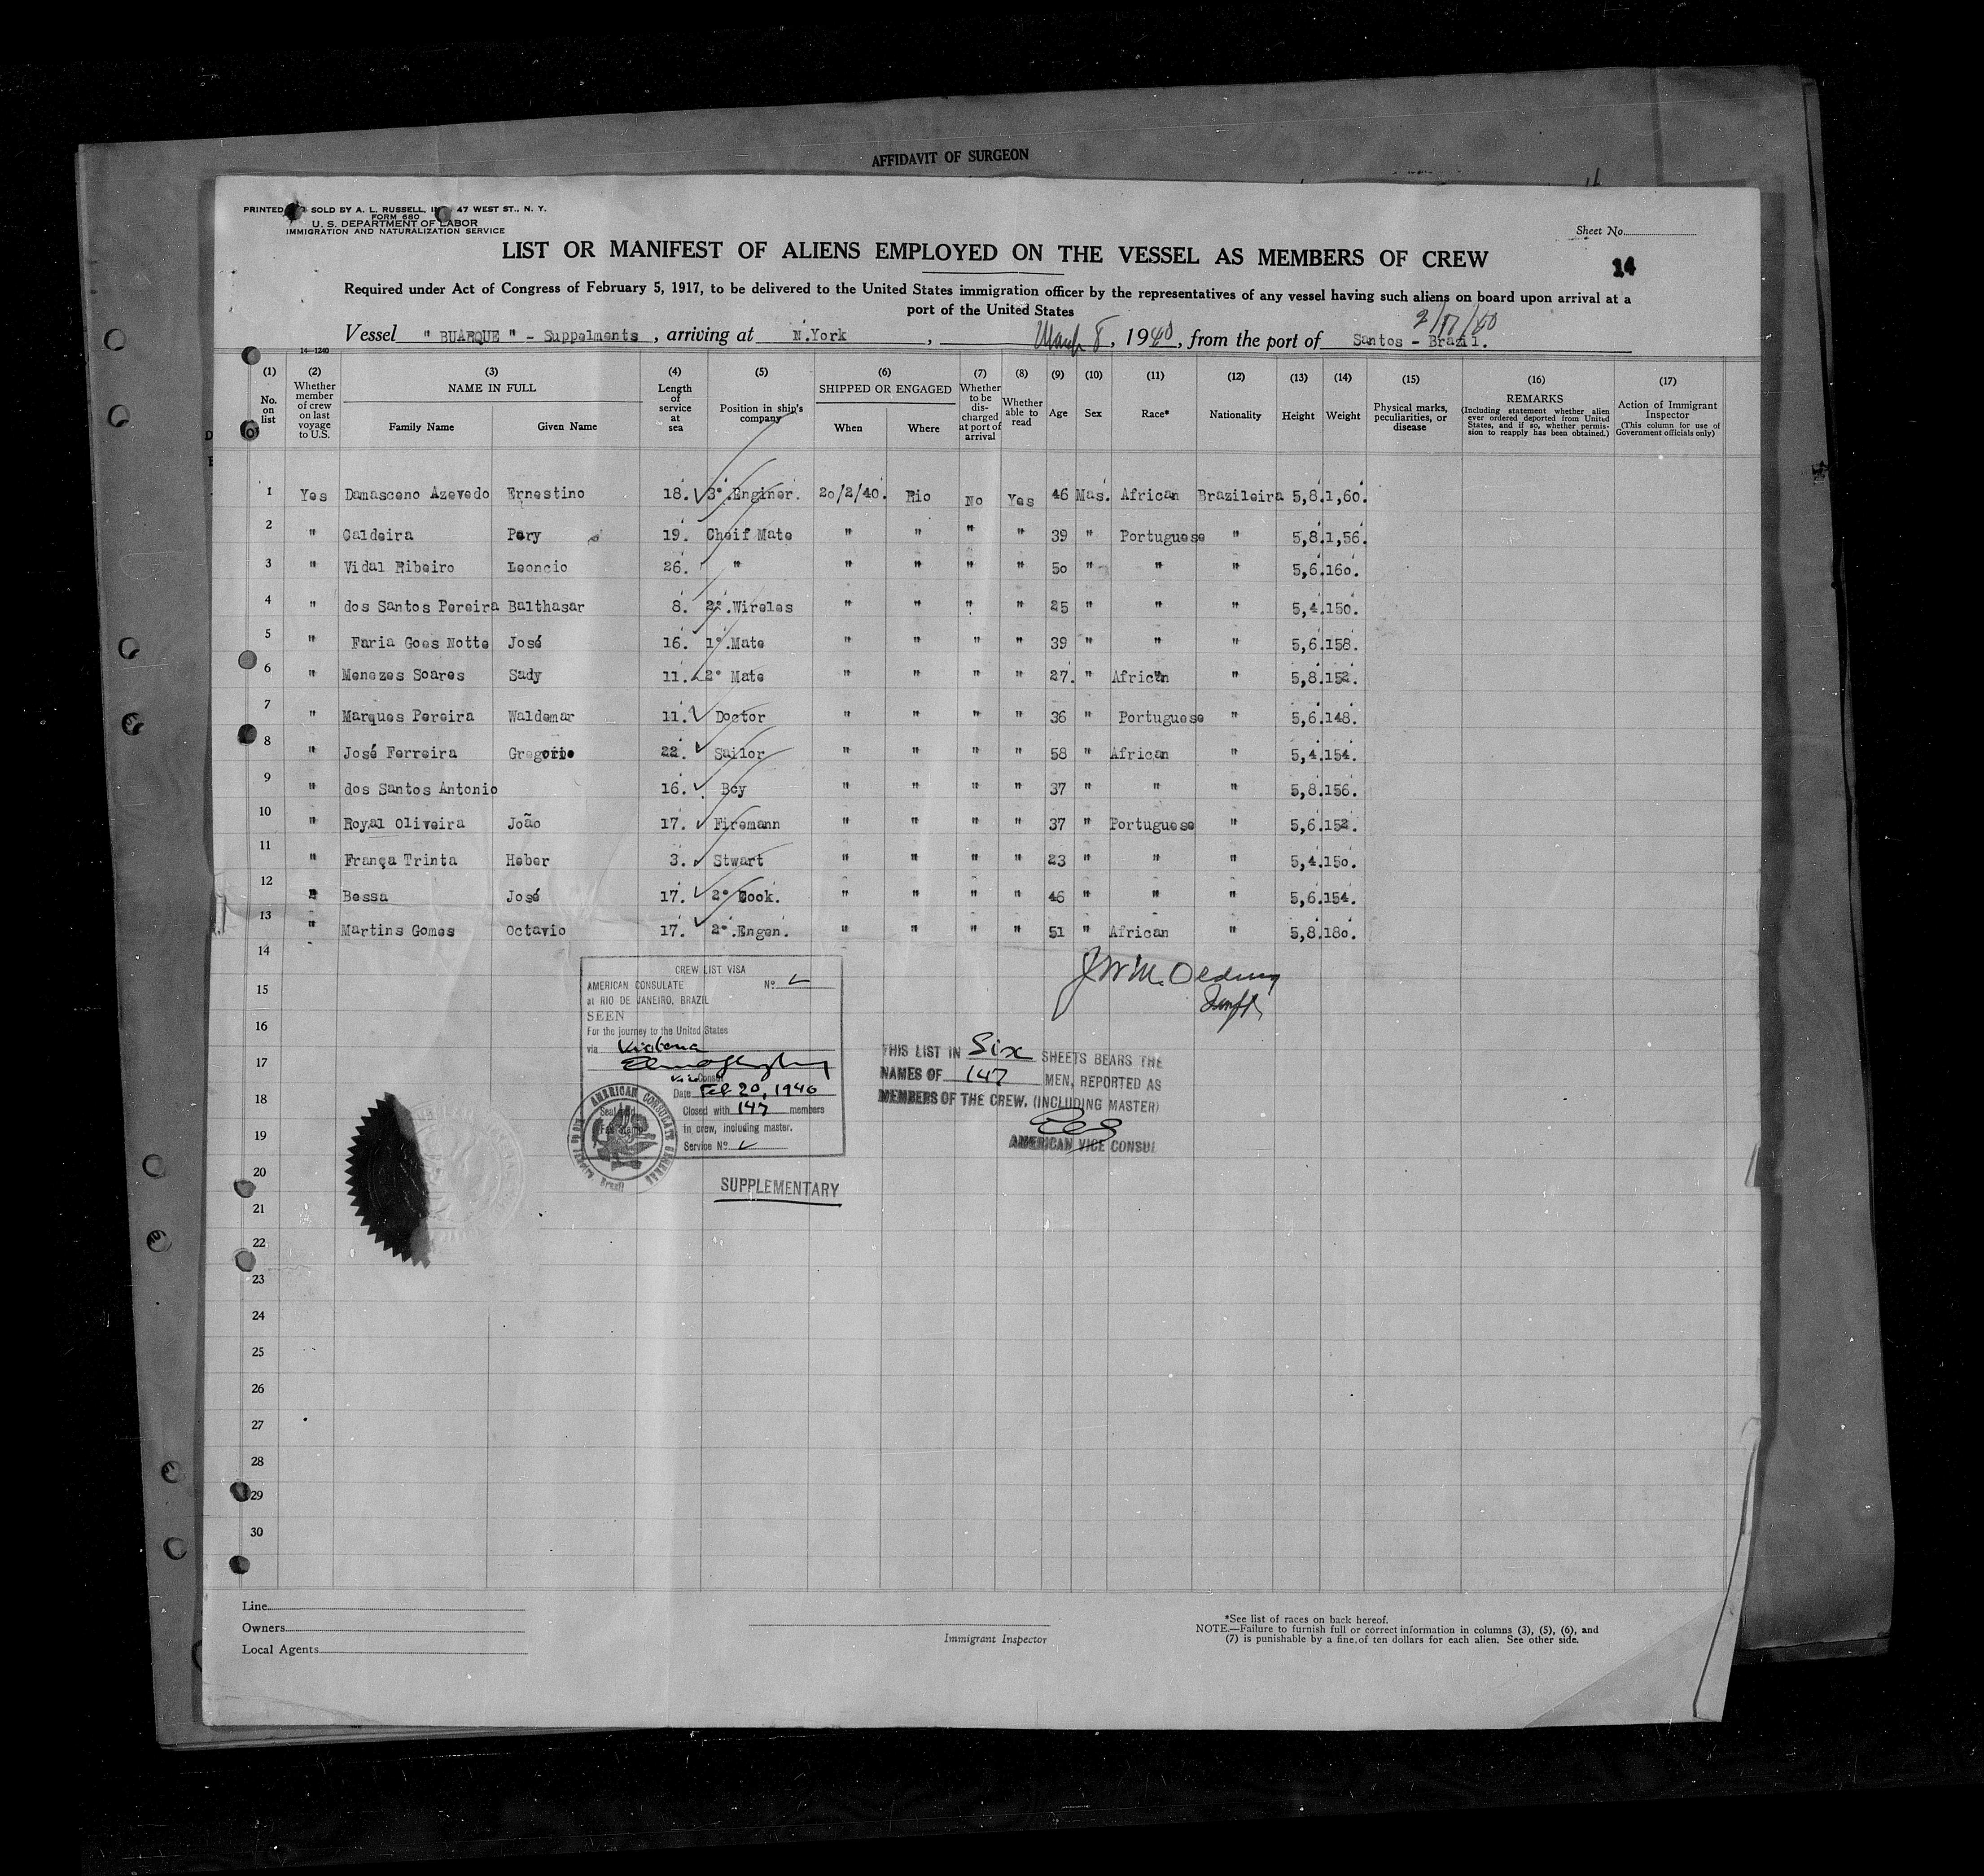 AFFIDAVIT OF SURGEON
PRINTED SOLD BY A. L. RUSSELL, 47 WEST ST., N. Y.
FORM 680
U. S. DEPARTMENT OF LABOR
IMMIGRATION AND NATURALIZATION SERVICE
Sheet No.
LIST OR MANIFEST OF ALIENS EMPLOYED ON THE VESSEL AS MEMBERS OF CREW
14
Required under Act of Congress of February 5, 1917, to be delivered to the United States immigration officer by the representatives of any vessel having such aliens on board upon arrival at a
port of the United States
2/17/40
Vessel " BUARQUE " - Suppelments , arriving at N.York , March 8, 1940, from the port of Santos - Brazil.
14-1240
(1) No. on list (2) Whether member of crew on last voyage to U.S. (3) NAME IN FULL Family Name Given Name (4) Length of service at sea (5) Position in ship's company (6) SHIPPED OR ENGAGED When Where (7) Whether to be discharged at port of arrival (8) Whether able to read (9) Age (10) Sex (11) Race* (12) Nationality (13) Height (14) Weight (15) Physical marks, peculiarities, or disease (16) REMARKS (Including statement whether alien ever ordered deported from United States, and if so, whether permission to reapply has been obtained.) (17) Action of Immigrant Inspector (This column for use of Government officials only)
1 Yes Damasceno Azevedo Ernestino 18. 3°.Enginer. 20/2/40. Rio No Yes 46 Mas. African Brazileira 5,8.1,60.
2 " Caldeira Pery 19. Cheif Mate " " " " 39 " Portuguese " 5,8.1,56.
3 " Vidal Ribeiro Leoncio 26. " " " " " 50 " " " 5,6.160.
4 " dos Santos Pereira Balthasar 8. 2°.Wireles " " " " 25 " " " 5,4.150.
5 " Faria Goes Notte José 16. 1°.Mate " " " " 39 " " " 5,6.158.
6 " Menezes Soares Sady 11. 2° Mate " " " " 27. " African " 5,8.152.
7 " Marques Pereira Waldemar 11. Doctor " " " " 36 " Portuguese " 5,6.148.
8 " José Ferreira Gregorio 22. Sailor " " " " 58 " African " 5,4.154.
9 " dos Santos Antonio 16. Boy " " " " 37 " " " 5,8.156.
10 " Royal Oliveira João 17. Firemann " " " " 37 " Portuguese " 5,6.152.
11 " França Trinta Heber 3. Stwart " " " " 23 " " " 5,4.150.
12 " Bessa José 17. 2° Cook. " " " " 46 " " " 5,6.154.
13 " Martins Gomes Octavio 17. 2°.Engen. " " " " 51 " African " 5,8.180.
14
15
16
17
18
19
20
21
22
23
24
25
26
27
28
29
30
CREW LIST VISA
AMERICAN CONSULATE No.
at RIO DE JANEIRO, BRAZIL
SEEN
For the journey to the United States
via Victoria
Vice Consul
Date Feb 20, 1940
Closed with 147 members
in crew, including master.
Service No.
AMERICAN CONSULATE GENERAL
Brazil
SUPPLEMENTARY
THIS LIST IN Six SHEETS BEARS THE
NAMES OF 147 MEN, REPORTED AS
MEMBERS OF THE CREW, (INCLUDING MASTER)
AMERICAN VICE CONSUL
Line
Owners
Local Agents
Immigrant Inspector
*See list of races on back hereof.
NOTE.—Failure to furnish full or correct information in columns (3), (5), (6), and
(7) is punishable by a fine of ten dollars for each alien. See other side.